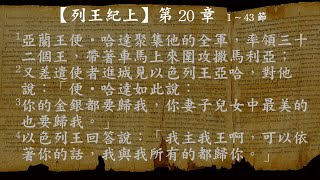 【列王紀上】第 20 章 1～43 節
1亞蘭王便‧哈達聚集他的全軍，率領三十
二個王，帶著車馬上來圍攻撒馬利亞；
2又差遣使者進城見以色列王亞哈，對他
說：「便‧哈達如此說：
3你的金銀都要歸我，你妻子兒女中最美的
也要歸我。」
4以色列王回答說：「我主我王啊，可以依
著你的話，我與我所有的都歸你。」